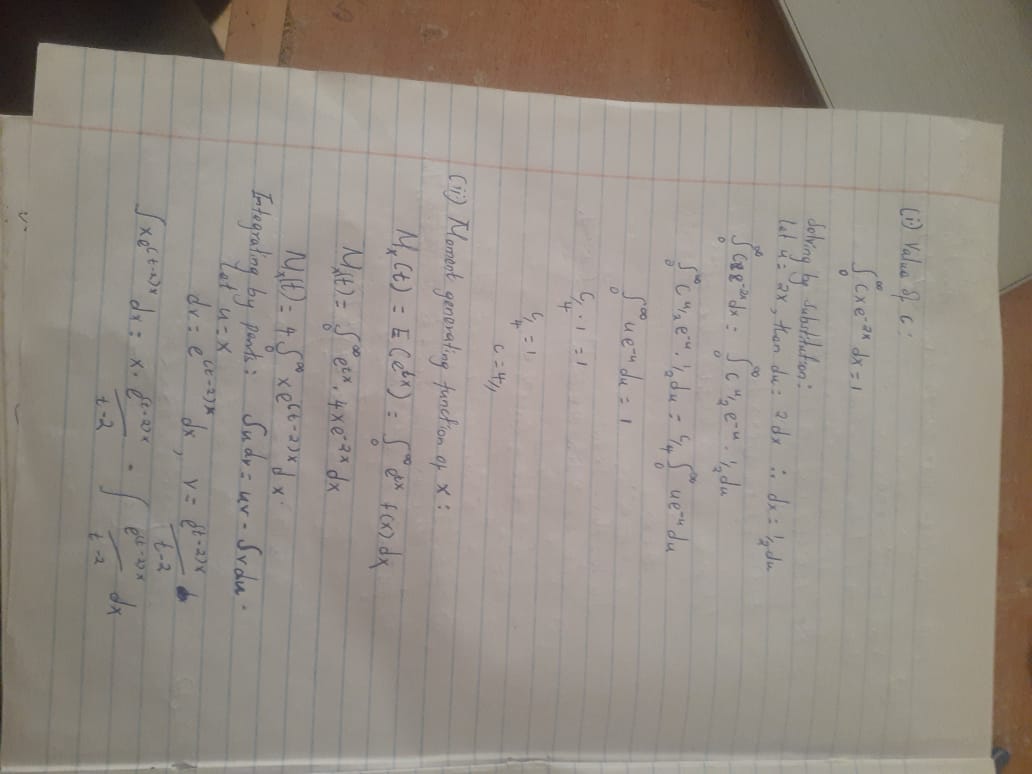 (i) Value of C:
∫₀^∞ Cxe^-2x dx = 1
Solving by substitution:
Let u = 2x, then du = 2 dx ∴ dx = 1/2 du
∫₀^∞ Cxe^-2x dx = ∫₀^∞ C u/2 e^-u · 1/2 du
∫₀^∞ C u/2 e^-u · 1/2 du = C/4 ∫₀^∞ ue^-u du
∫₀^∞ ue^-u du = 1
C/4 · 1 = 1
C/4 = 1
C = 4//
(ii) Moment generating function of X:
Mx(t) = E(e^tx) = ∫₀^∞ e^tx f(x) dx
Mx(t) = ∫₀^∞ e^tx · 4xe^-2x dx
Mx(t) = 4 ∫₀^∞ xe^(t-2)x dx.
Integrating by parts: ∫u dv = uv - ∫v du.
Let u = x
dv = e^(t-2)x dx, v = e^(t-2)x / t-2
∫xe^(t-2)x dx = x · e^(t-2)x / t-2 - ∫ e^(t-2)x / t-2 dx